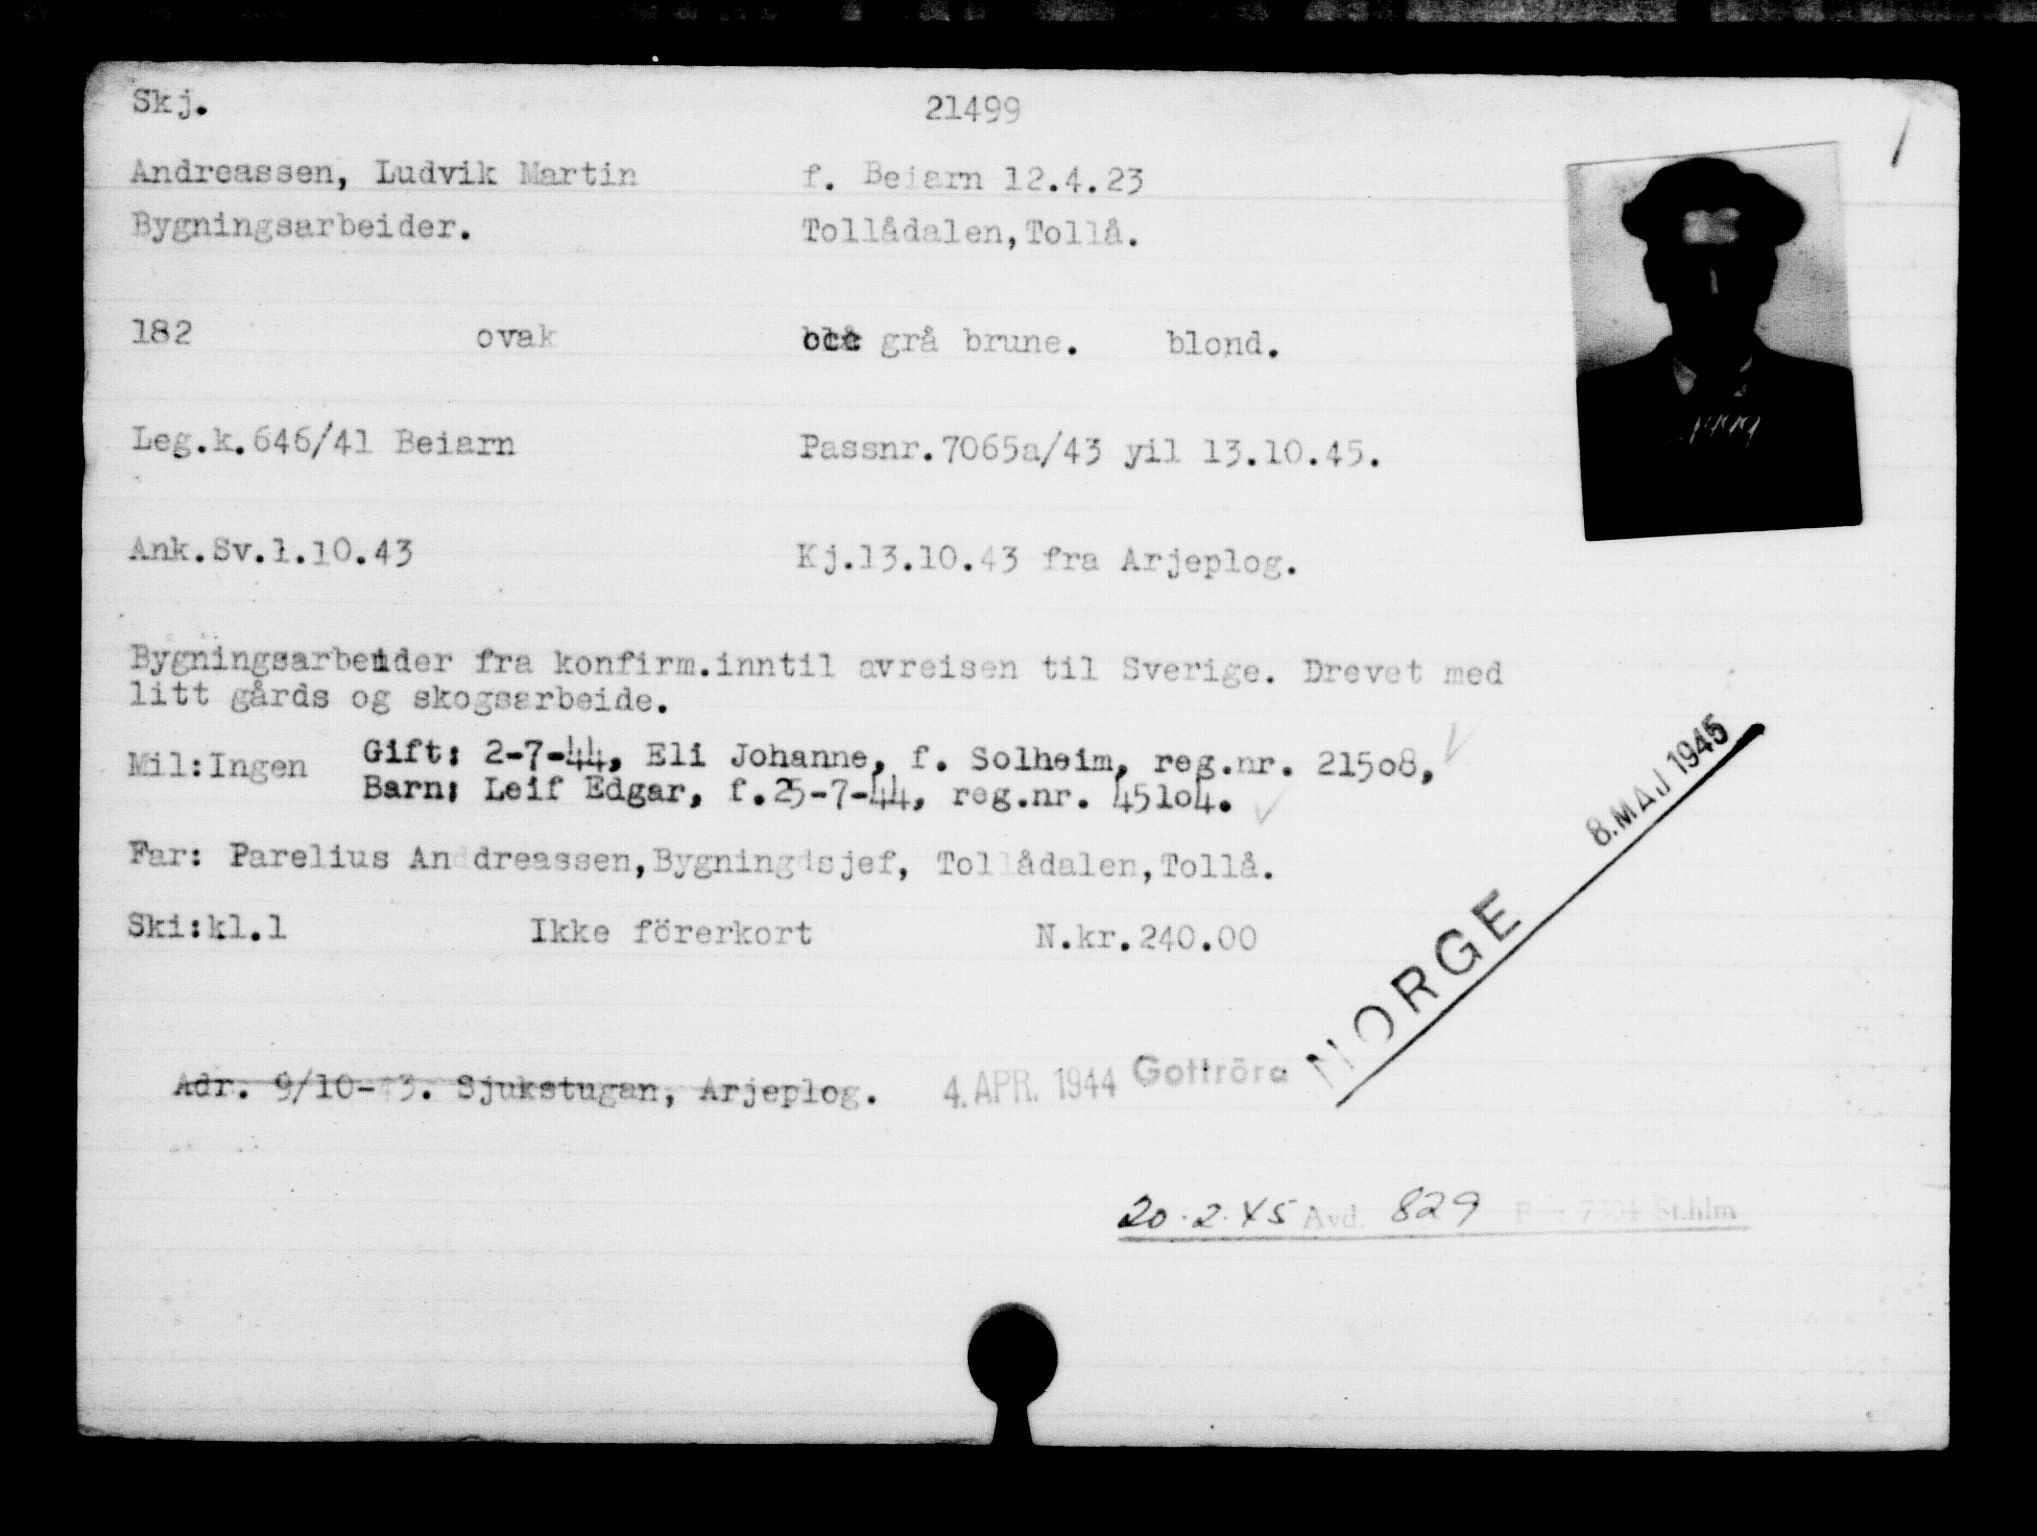 Skj. 21499
Andreassen, Ludvik Martin f. Beiarn 12.4.23
Bygningsarbeider. Tollådalen,Tollå.
182 ovak grå brune. blond.
Leg.k.646/41 Beiarn Passnr.7065a/43 yil 13.10.45.
Ank.Sv.1.10.43 Kj.13.10.43 fra Arjeplog.
Bygningsarbeider fra konfirm.inntil avreisen til Sverige. Drevet med
litt gårds og skogsarbeide.
Mil:Ingen Gift: 2-7-44, Eli Johanne, f. Solheim, reg.nr. 21508,
Barn: Leif Edgar, f.25-7-44, reg.nr. 45104.
Far: Parelius An dreassen,Bygningdsjef, Tollådalen,Tollå.
Ski:kl.1 Ikke förerkort N.kr.240.00
NORGE 8. MAJ 1945
Adr. 9/10-43. Sjukstugan, Arjeplog. 4. APR. 1944 Gottröra
20.2.45 Avd. 829 St.hlm